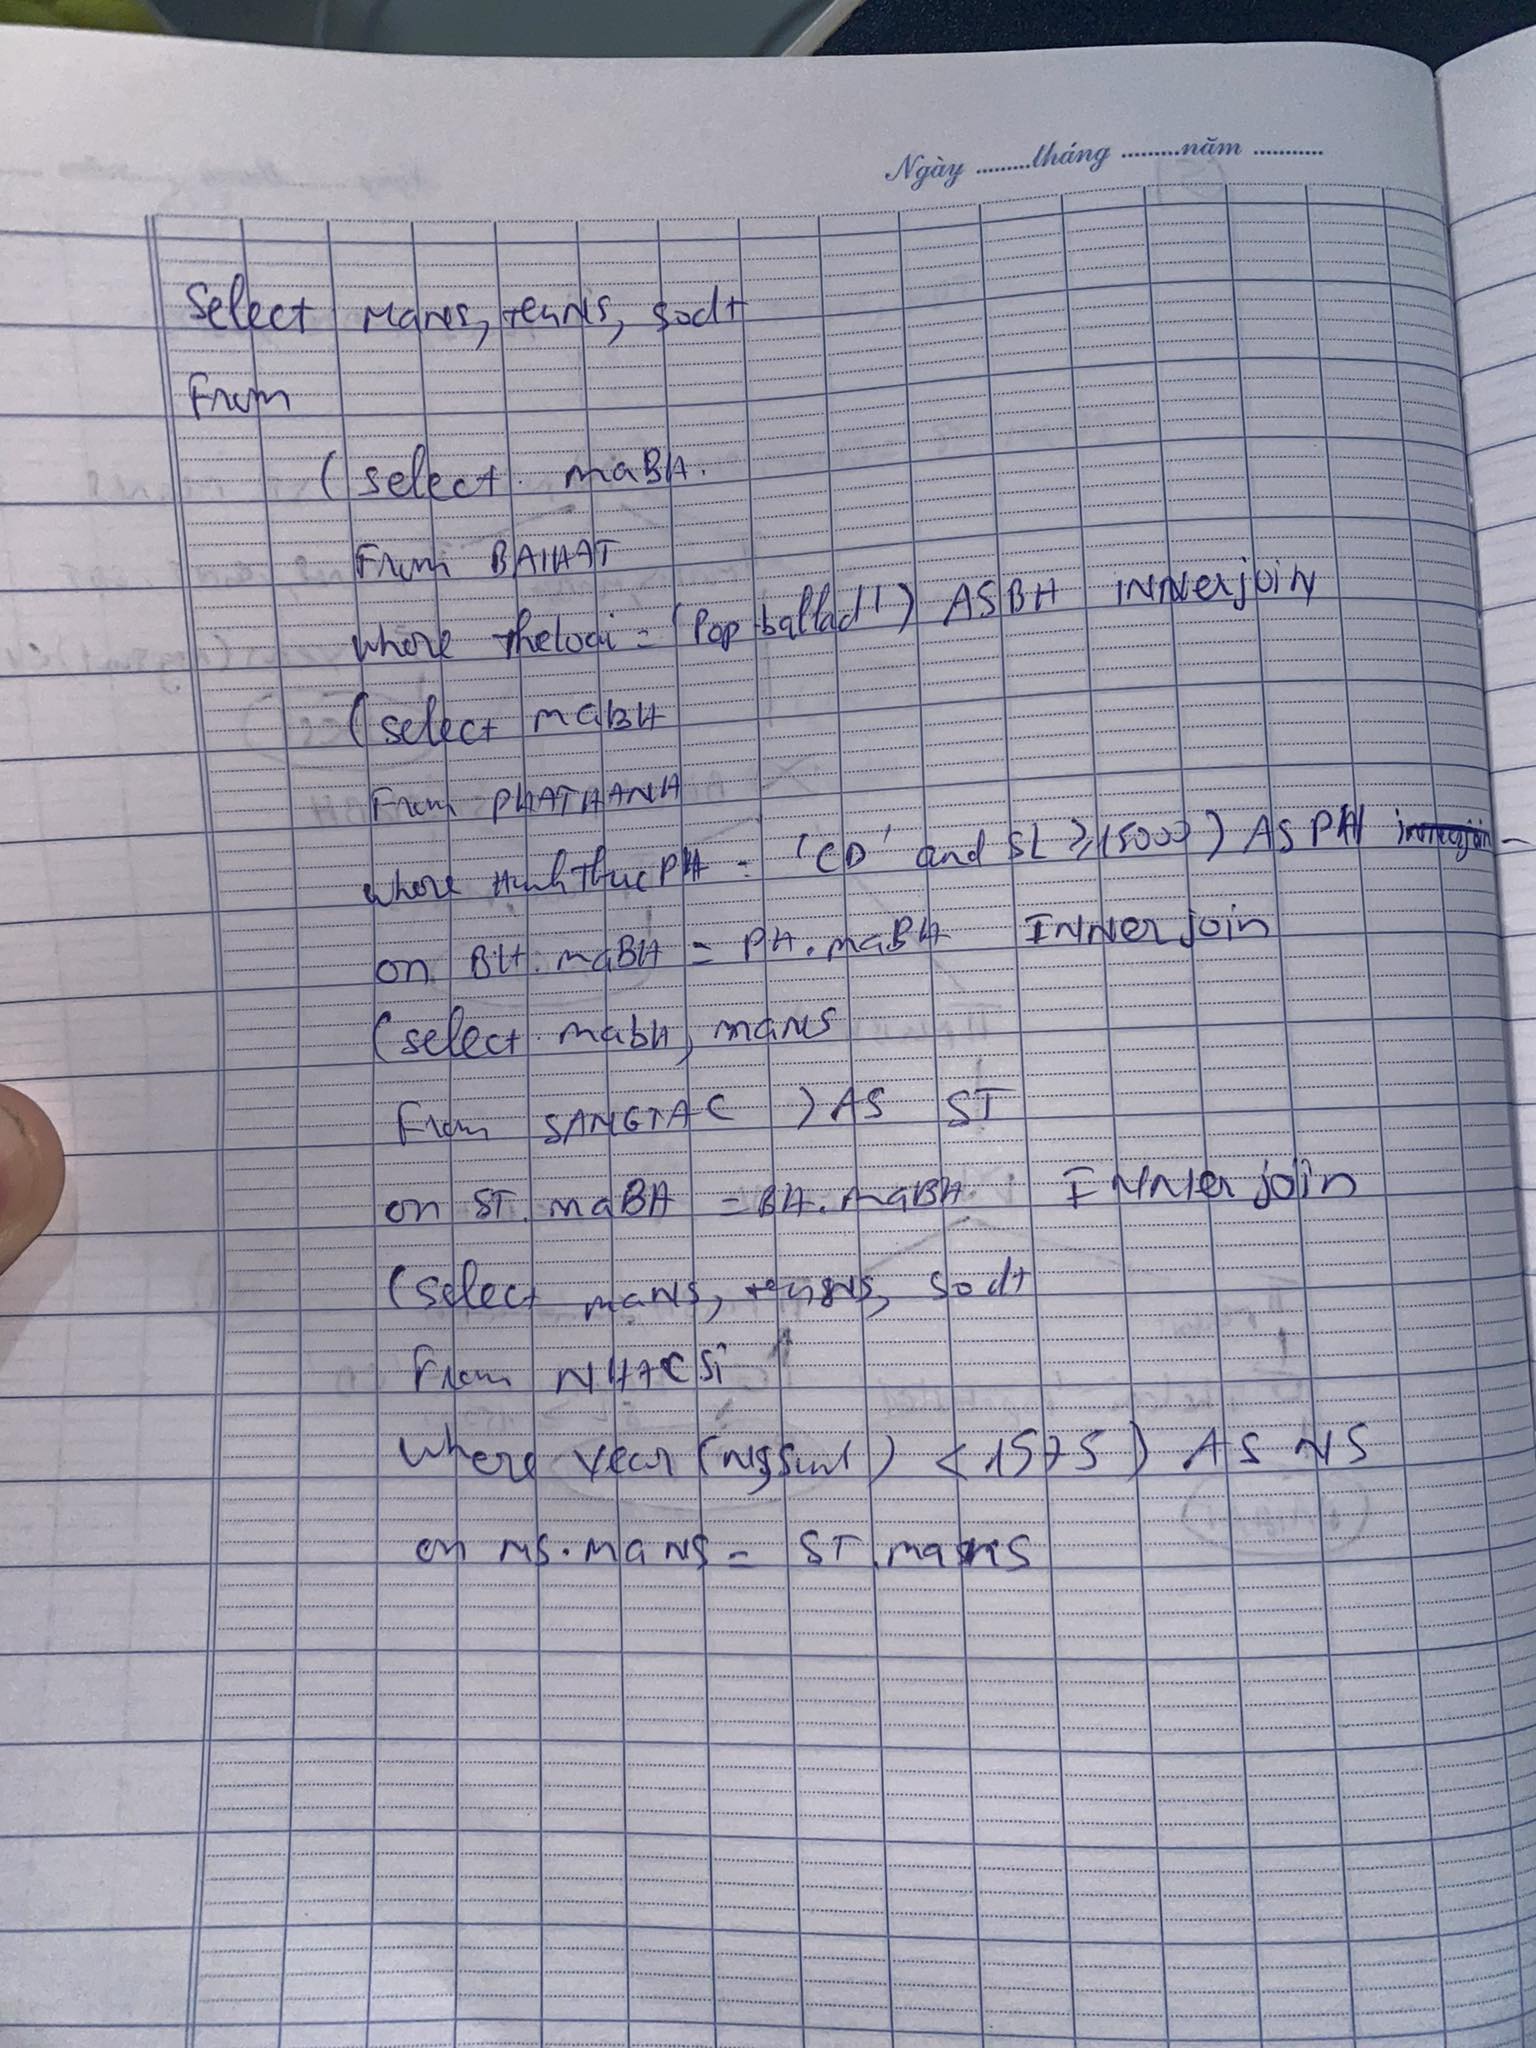 Ngày ........tháng .........năm ..........
Select MaNS, tenNS, sodt
From
(select maBH.
From BAIHAT
where theloai = 'Pop ballad') AS BH INNER join
(select maBH
From PHATHANH
where HinhThucPH = 'CD' and SL ≥ 15000) AS PH
on BH.maBH = PH.maBH INNER join
(select mabH, maNS
From SANGTAC ) AS ST
on ST.maBH = BH.maBH. INNER join
(select maNS, tenNS, sodt
From NHACSI
where Year (NgSinh) < 1975) AS NS
on NS.MaNS = ST.maNS